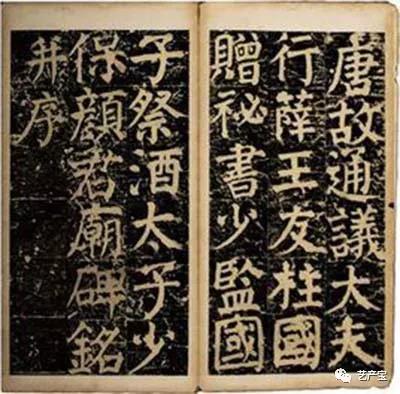 唐故通議大夫
行薛王友柱國
贈祕書少監國
子祭酒太子少
保顏君廟碑銘
并序
艺产宝